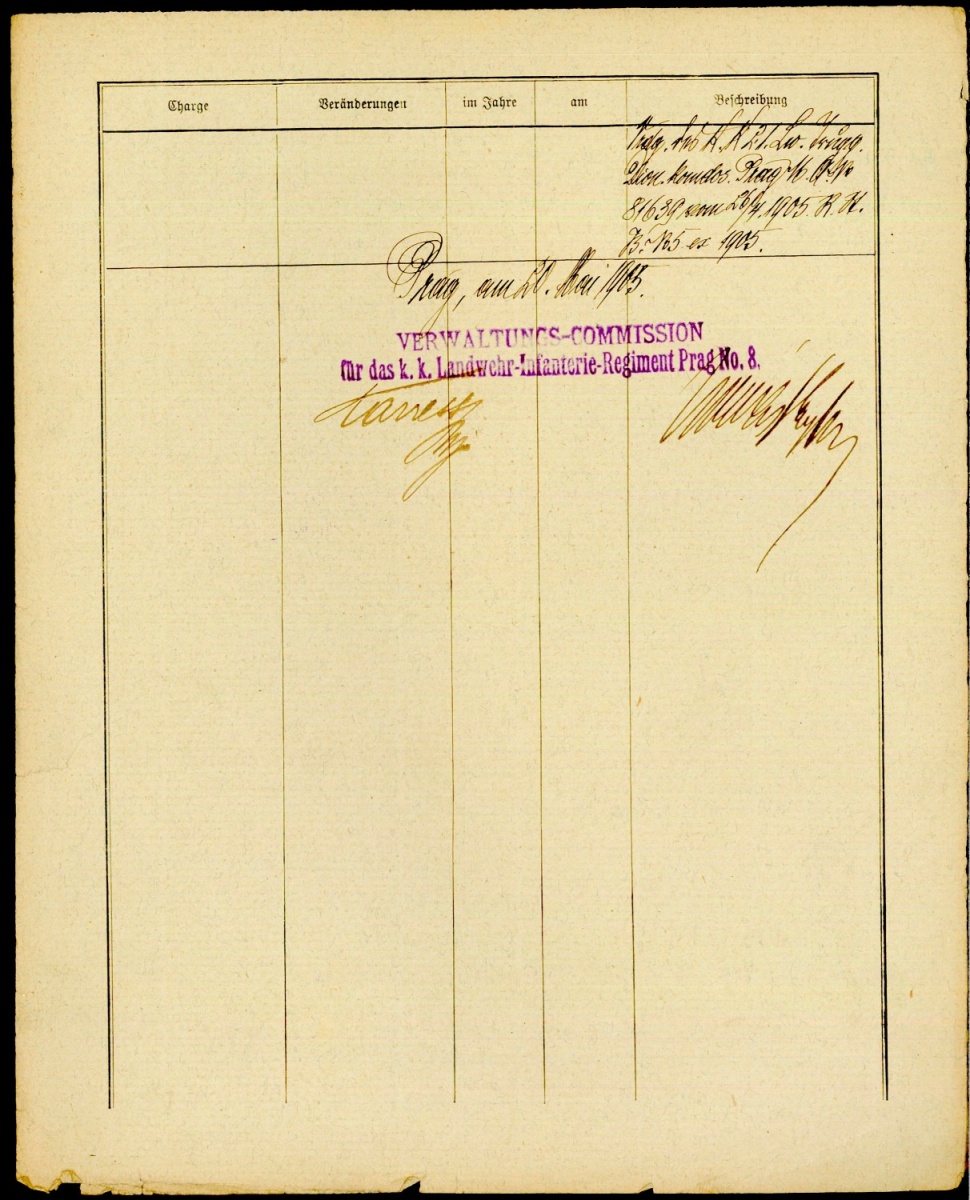 Charge Veränderungen im Jahre am Beschreibung
Vdg. des k. k. 21. Lw. Trupp.
Dion. Komdos. Prag M. A. Nr
81639 vom 26/4 1905. R. H.
B. 185 ex 1905.
Prag, am 20. Mai 1905.
VERWALTUNGS-COMMISSION
für das k. k. Landwehr-Infanterie-Regiment Prag No. 8.